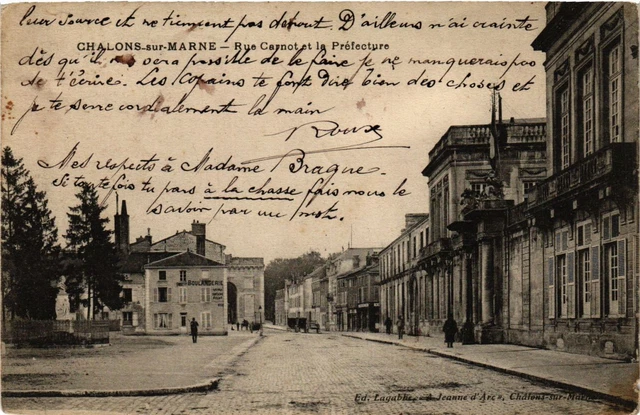 leur source et ne tiennent pas debout. D'ailleurs n'ai crainte
CHALONS-sur-MARNE — Rue Carnot et la Préfecture
dès qu'il me sera possible de le faire je ne manquerais pas
de t'écrire. Les copains te font dire bien des choses et
je te serre cordialement la main
Roux
Mes respects à Madame Braque.
Si toutefois tu pars à la chasse fais nous le
savoir par un mot.
BOULANGERIE
Ed. Lagabbe, « A Jeanne d'Arc », Châlons-sur-Marne